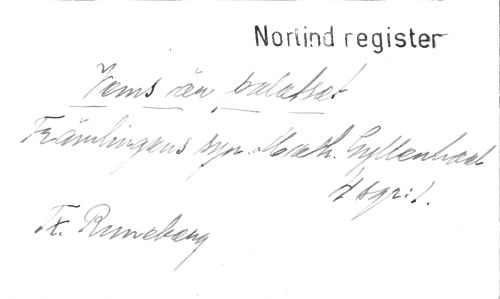 Norlind register
Vems är palatset
Främlingens syn. Math. Gyllenhaal
Fr. Runeberg